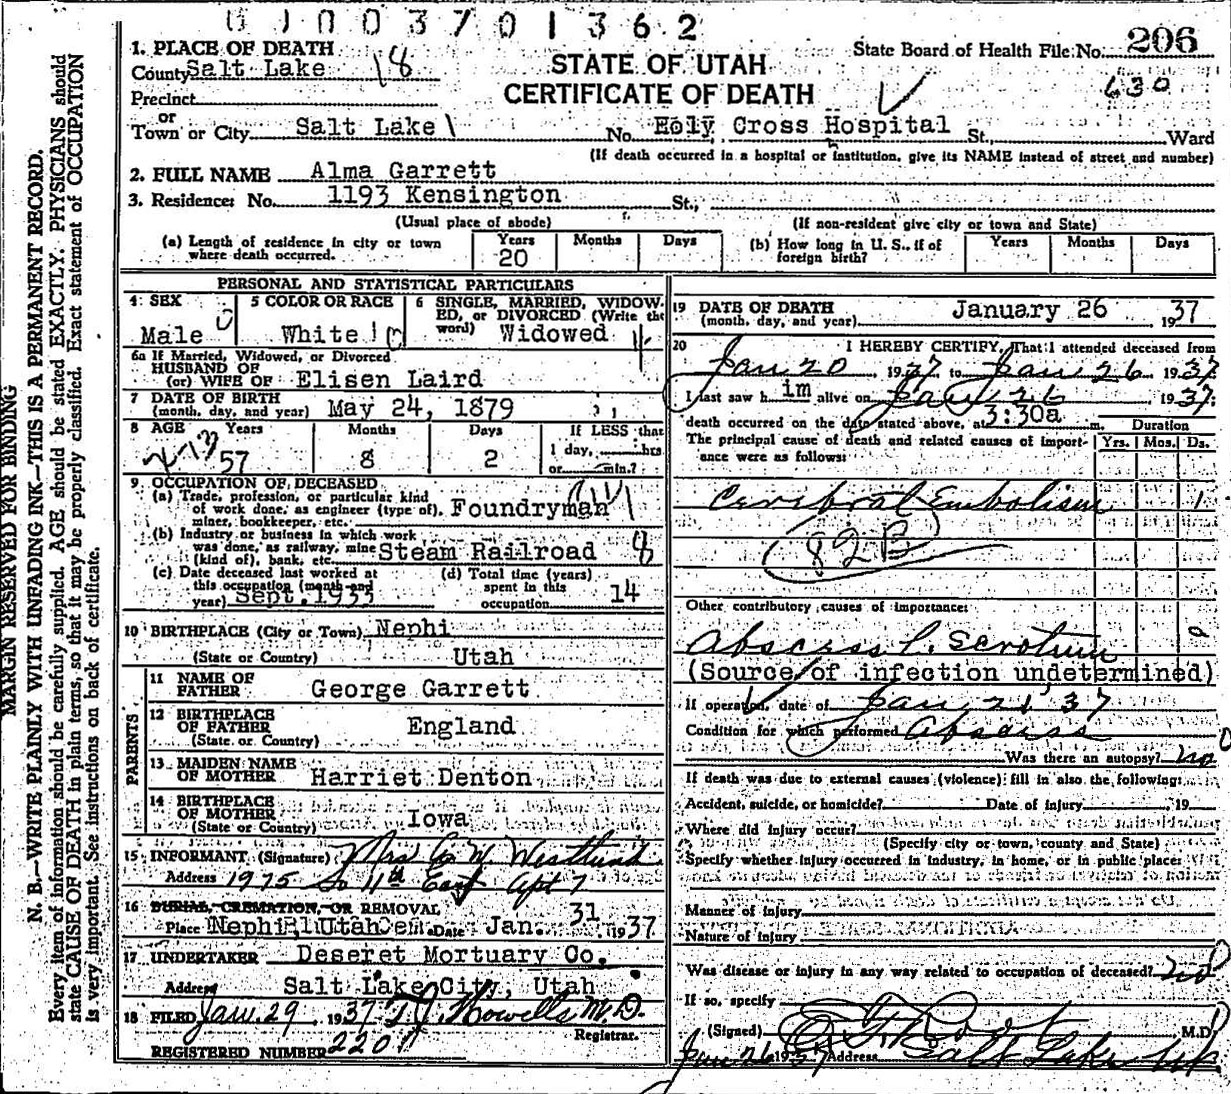 01003701362
1. PLACE OF DEATH
County Salt Lake 18
STATE OF UTAH
CERTIFICATE OF DEATH
State Board of Health File No. 206
630
Precinct
or
Town or City Salt Lake 1
No. Holy Cross Hospital St., Ward
(If death occurred in a hospital or institution, give its NAME instead of street and number)
2. FULL NAME Alma Garrett
3. Residence: No. 1193 Kensington St.,
(Usual place of abode) (If non-resident give city or town and State)
(a) Length of residence in city or town where death occurred. Years 20 Months Days
(b) How long in U. S., if of foreign birth? Years Months Days
PERSONAL AND STATISTICAL PARTICULARS
4 SEX Male
5 COLOR OR RACE White
6 SINGLE, MARRIED, WIDOWED, or DIVORCED (Write the word) Widowed 4
6a If Married, Widowed, or Divorced
HUSBAND OF
(or) WIFE OF Elisen Laird
7 DATE OF BIRTH
(month, day, and year) May 24, 1879
8 AGE Years 57 Months 8 Days 2 If LESS than 1 day, hrs or min.?
9 OCCUPATION OF DECEASED
(a) Trade, profession, or particular kind of work done, as engineer (type of), miner, bookkeeper, etc. Foundryman
(b) Industry or business in which work was done, as railway, mine (kind of), bank, etc. Steam Railroad 8
(c) Date deceased last worked at this occupation (month and year) Sept. 1935
(d) Total time (years) spent in this occupation 14
10 BIRTHPLACE (City or Town) Nephi
(State or Country) Utah
PARENTS
11 NAME OF FATHER George Garrett
12 BIRTHPLACE OF FATHER (State or Country) England
13 MAIDEN NAME OF MOTHER Harriet Denton
14 BIRTHPLACE OF MOTHER (State or Country) Iowa
15 INFORMANT (Signature) Mrs W. Westlund
Address 1975 So 11th East Apt 7
16 BURIAL, CREMATION, OR REMOVAL
Place Nephi Utah Cem. Date Jan. 31 1937
17 UNDERTAKER Deseret Mortuary Co.
Address Salt Lake City, Utah
18 FILED Jan. 29, 1937 Howells M.D.
Registrar.
REGISTERED NUMBER 220
19 DATE OF DEATH
(month, day, and year) January 26 1937
20 I HEREBY CERTIFY, That I attended deceased from
Jan 20, 1937 to Jan 26 1937
I last saw him alive on Jan 26 1937
death occurred on the date stated above, at 3:30a m. Duration
The principal cause of death and related causes of importance were as follows: Yrs. Mos. Ds.
Cerebral Embolism 1
82B
Other contributory causes of importance:
Abscess L. Scrotum
(Source of infection undetermined)
If operation, date of Jan 21 37
Condition for which performed Abscess
Was there an autopsy? no
If death was due to external causes (violence) fill in also the following:
Accident, suicide, or homicide? Date of injury 19
Where did injury occur?
(Specify city or town, county and State)
Specify whether injury occurred in industry, in home, or in public place:
Manner of injury
Nature of injury
Was disease or injury in any way related to occupation of deceased? no
If so, specify
(Signed) Root M.D.
Jan 26 1937 Address Salt Lake
MARGIN RESERVED FOR BINDING
N. B.—WRITE PLAINLY WITH UNFADING INK—THIS IS A PERMANENT RECORD.
Every item of information should be carefully supplied. AGE should be stated EXACTLY. PHYSICIANS should
state CAUSE OF DEATH in plain terms, so that it may be properly classified. Exact statement of OCCUPATION
is very important. See instructions on back of certificate.